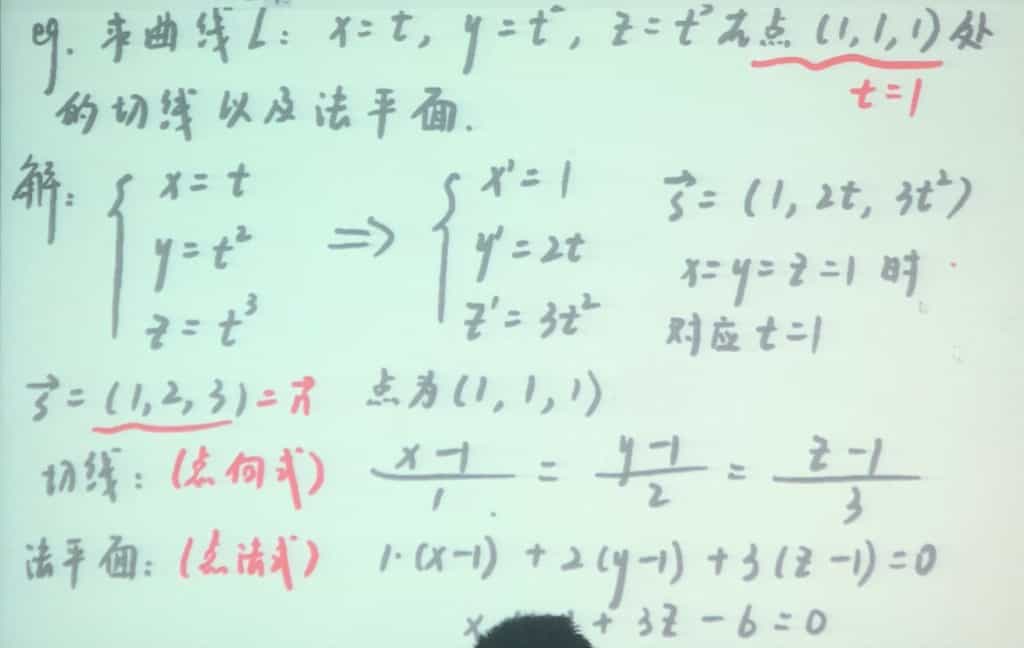 eg. 求曲线L: x=t, y=t², z=t³在点(1,1,1)处
t=1
的切线以及法平面.
解: { x=t y=t² z=t³ ⇒ { x'=1 y'=2t z'=3t²
s⃗=(1, 2t, 3t²)
x=y=z=1 时
对应 t=1
s⃗=(1,2,3)=n⃗ 点为(1,1,1)
切线: (点向式) (x-1)/1 = (y-1)/2 = (z-1)/3
法平面: (点法式) 1·(x-1)+2(y-1)+3(z-1)=0
x + 3z - 6 = 0